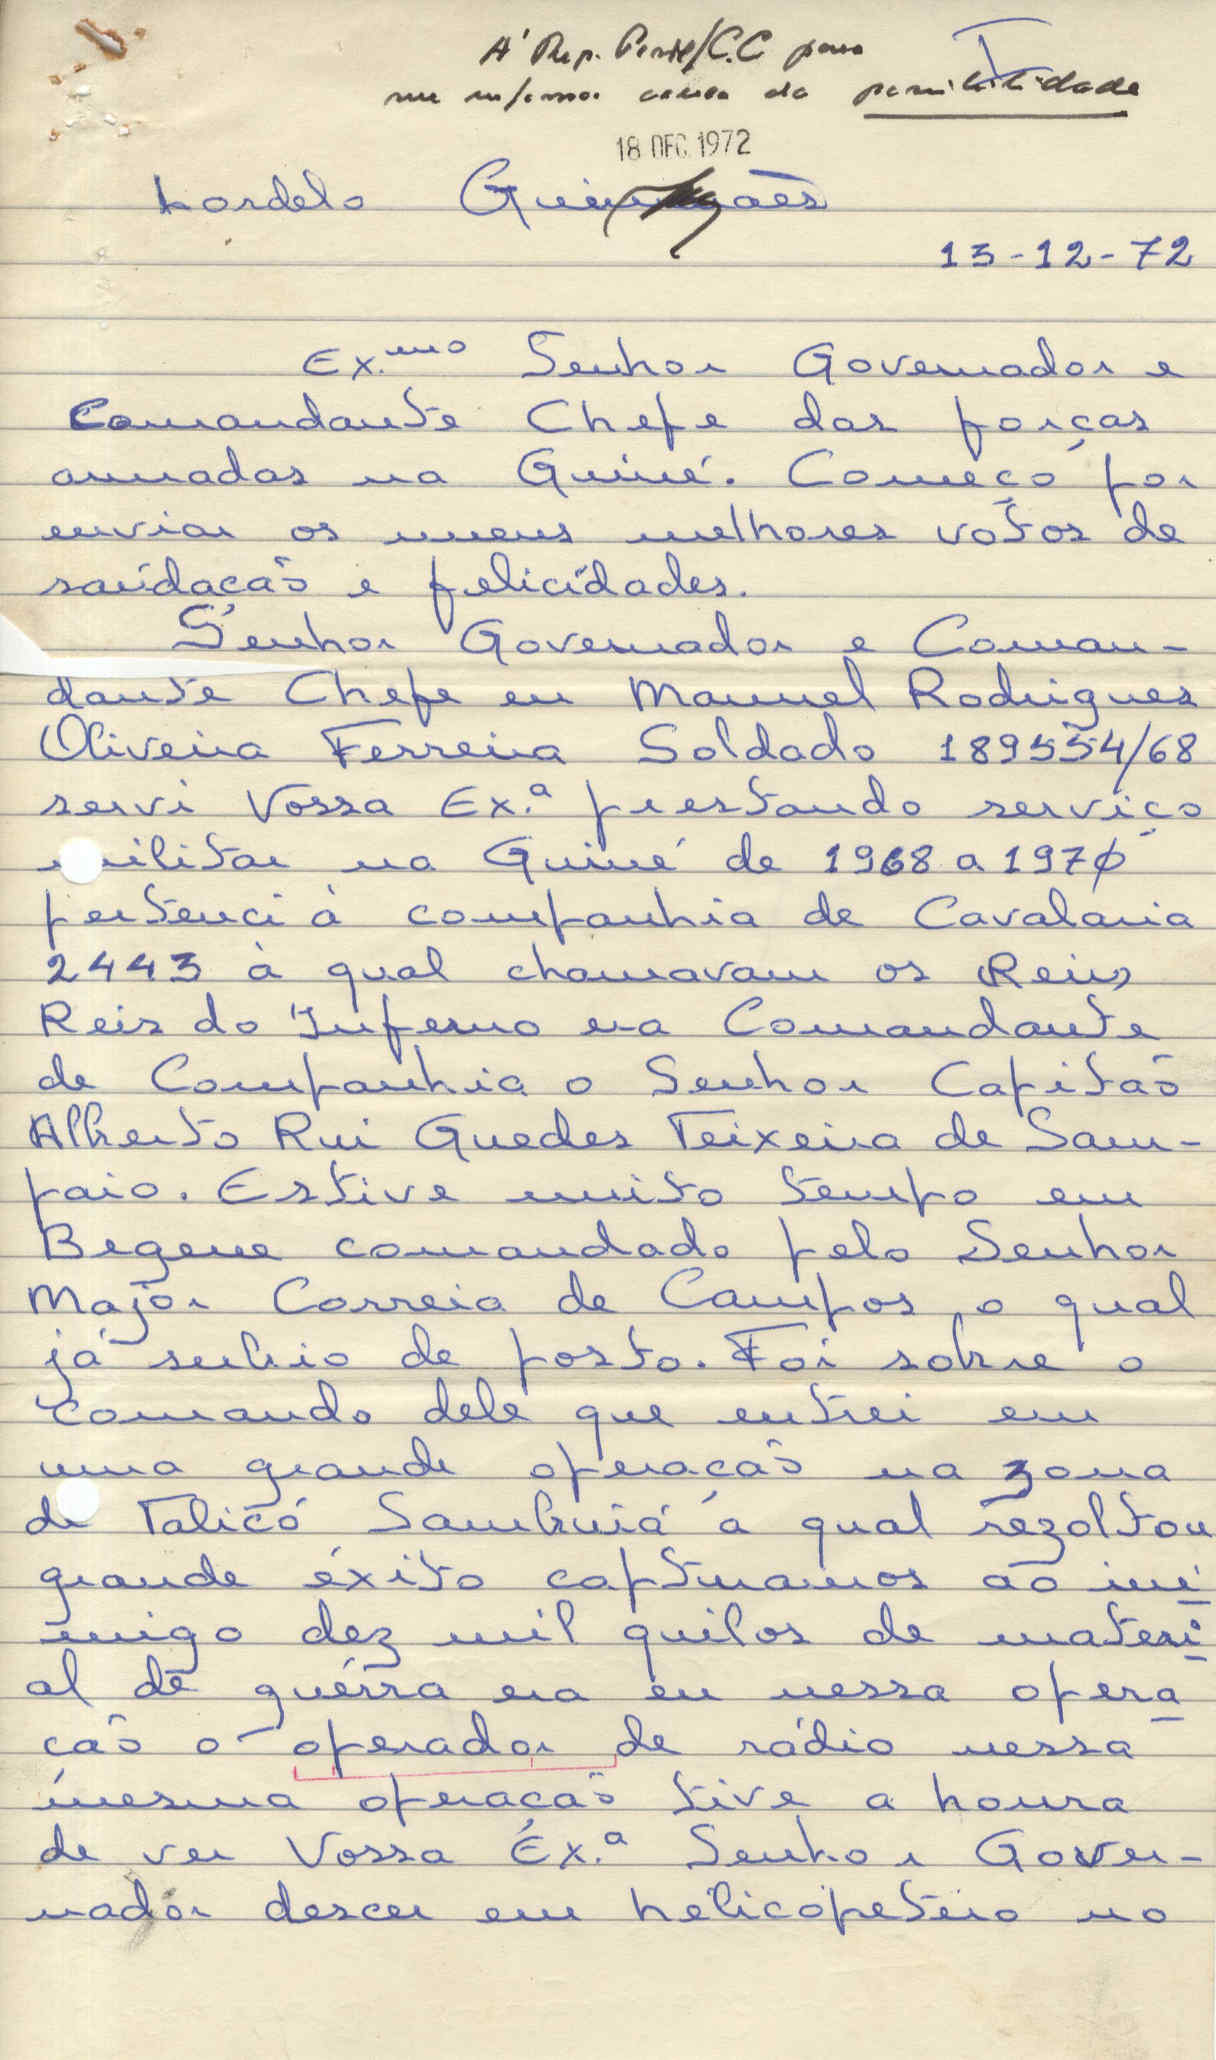 À Rep. Pess/C.C para
me informar acerca da possibilidade
18 DEC. 1972
Lordelo Guimarães
13-12-72
Ex.mo Senhor Governador e
Comandante Chefe das forças
armadas na Guiné. Começo por
enviar os meus melhores votos de
saúdação e felicidades.
Senhor Governador e Coman-
dante Chefe eu Manuel Rodrigues
Oliveira Ferreira Soldado 189554/68
servi Vossa Ex.ª prestando serviço
militar na Guiné de 1968 a 1970
pertenci à companhia de Cavalaria
2443 à qual chamavam os Reis
Reis do Inferno era Comandante
de Companhia o Senhor Capitão
Alberto Rui Guedes Teixeira de Sam-
paio. Estive muito tempo em
Begene comandado pelo Senhor
Major Correia de Campos o qual
já subio de posto. Foi sobre o
comando dele que entrei em
uma grande operação na zona
de Talicó Sambuiá a qual rezoltou
grande éxito capturamos ao ini
imigo dez mil quilos de materi
al de guérra era eu nessa opera
ção o operador de rádio nessa
mesma operação tive a honra
de ver Vossa Éx.ª Senhor Gover-
nador descer em hélicópetero no